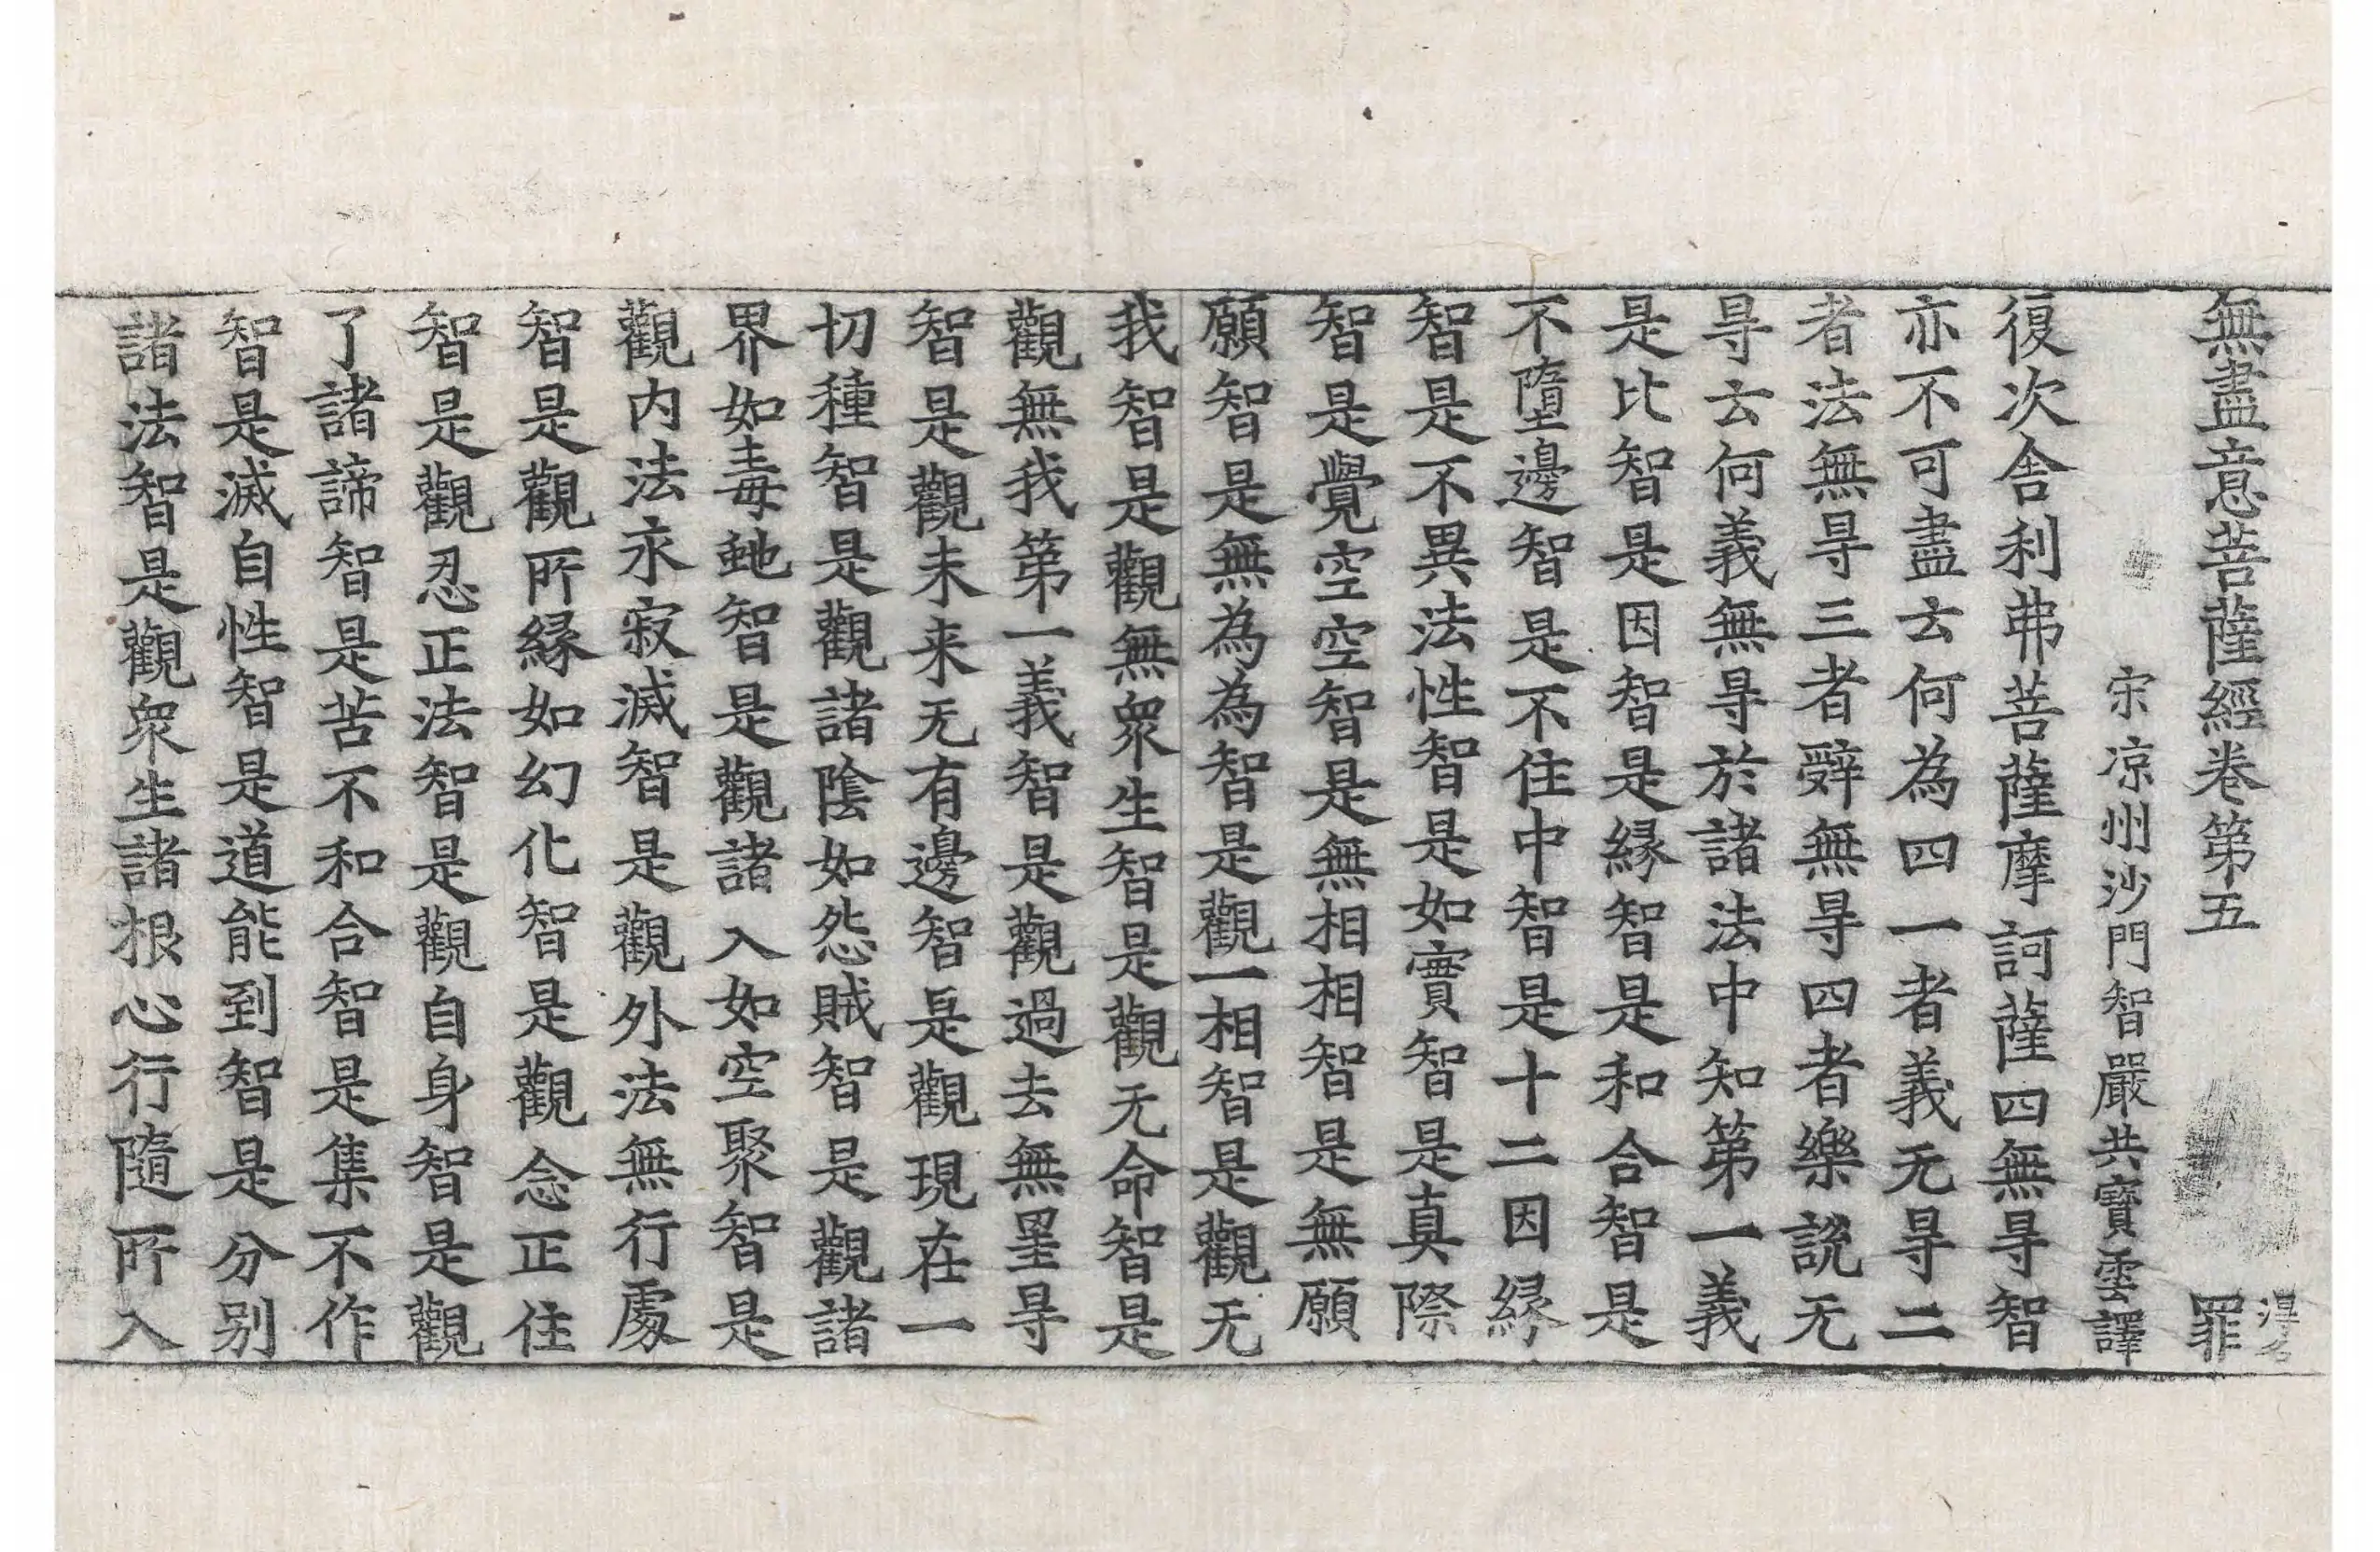 無盡意菩薩經卷第五 罪
宋涼州沙門智嚴共寶雲譯
復次舍利弗菩薩摩訶薩四無㝵智
亦不可盡云何為四一者義无㝵二
者法無㝵三者辤無㝵四者樂說无
㝵云何義無㝵於諸法中知第一義
是比智是因智是緣智是和合智是
不墮邊智是不住中智是十二因緣
智是不異法性智是如實智是真際
智是覺空空智是無相相智是無願
願智是無為為智是觀一相智是觀无
我智是觀無衆生智是觀无命智是
觀無我第一義智是觀過去無罣㝵
智是觀未来无有邊智是觀現在一
切種智是觀諸陰如怨賊智是觀諸
界如毒虵智是觀諸入如空聚智是
觀内法永寂滅智是觀外法無行處
智是觀所緣如幻化智是觀念正住
智是觀忍正法智是觀自身智是觀
了諸諦智是苦不和合智是集不作
智是滅自性智是道能到智是分别
諸法智是觀衆生諸根心行隨所入